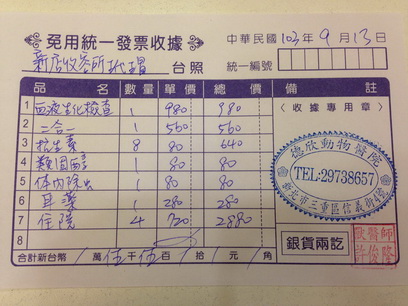 免用統一發票收據
中華民國 103年 9月 13日
新店收容所玳瑁 台照 統一編號
品名 數量 單價 總價 備註
1 血液生化檢查 1 980 980
2 二合一 1 560 560
3 抗生素 8 80 640
4 類固醇 1 80 80
5 体內除虫 1 80 80
6 耳藥 1 280 280
7 住院 4 720 2880
8
合計新台幣 萬 伍千 伍百 拾 元 角
〈收據專用章〉
德欣動物醫院
TEL:29738657
新北市三重區信義街
銀貨兩訖
獸醫師
許俊隆